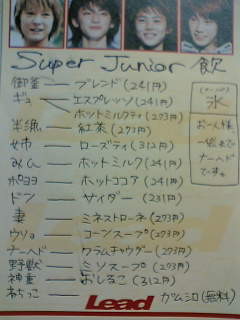 Super Junior 飲
御釜 ― ブレンド(241円)
ギュ ― エスプレッソ(241円)
ホットミルクティ(273円)
半漁 ― 紅茶(273円)
女市 ― ローズティ(312円)
みん ― ホットミルク(241円)
ポヨヨ ― ホットココア(241円)
ドン ― サイダー(231円)
妻 ― ミネストローネ(273円)
ウソョ ― コーンスープ(273円)
ナーハド ― クラムチャウダー(273円)
野獣 ― ミソスープ(273円)
神童 ― おしるこ(312円)
ねちっこ ― ガムシロ(無料)
氷
お一人様
一個まで
ナーハド
ですョ。
Lead